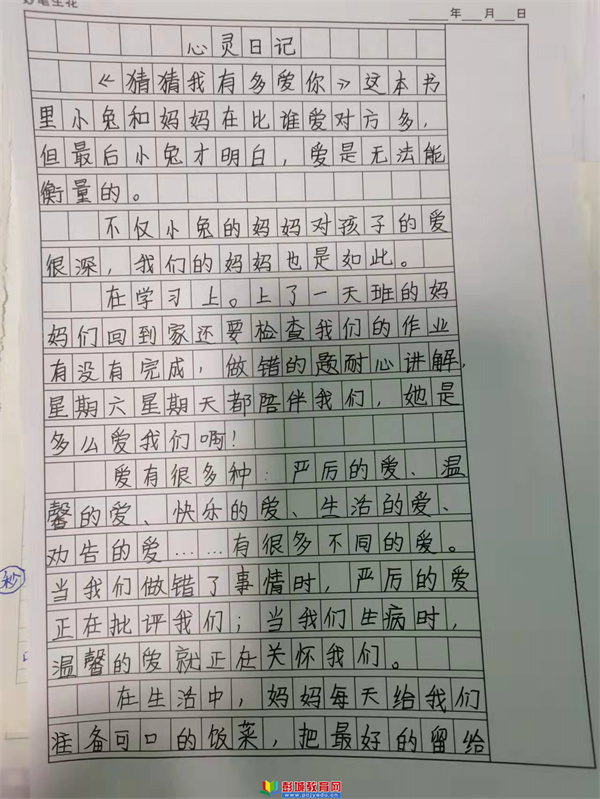 妙笔生花
年 月 日
心灵日记
《猜猜我有多爱你》这本书
里小兔和妈妈在比谁爱对方多，
但最后小兔才明白，爱是无法能
衡量的。
不仅小兔的妈妈对孩子的爱
很深，我们的妈妈也是如此。
在学习上。上了一天班的妈
妈们回到家还要检查我们的作业
有没有完成，做错的题耐心讲解，
星期六星期天都陪伴我们，她是
多么爱我们啊！
爱有很多种：严厉的爱、温
馨的爱、快乐的爱、生活的爱、
劝告的爱……有很多不同的爱。
当我们做错了事情时，严厉的爱
正在批评我们；当我们生病时，
温馨的爱就正在关怀我们。
在生活中，妈妈每天给我们
准备可口的饭菜，把最好的留给
彭城教育网
www.pcjyedu.cn